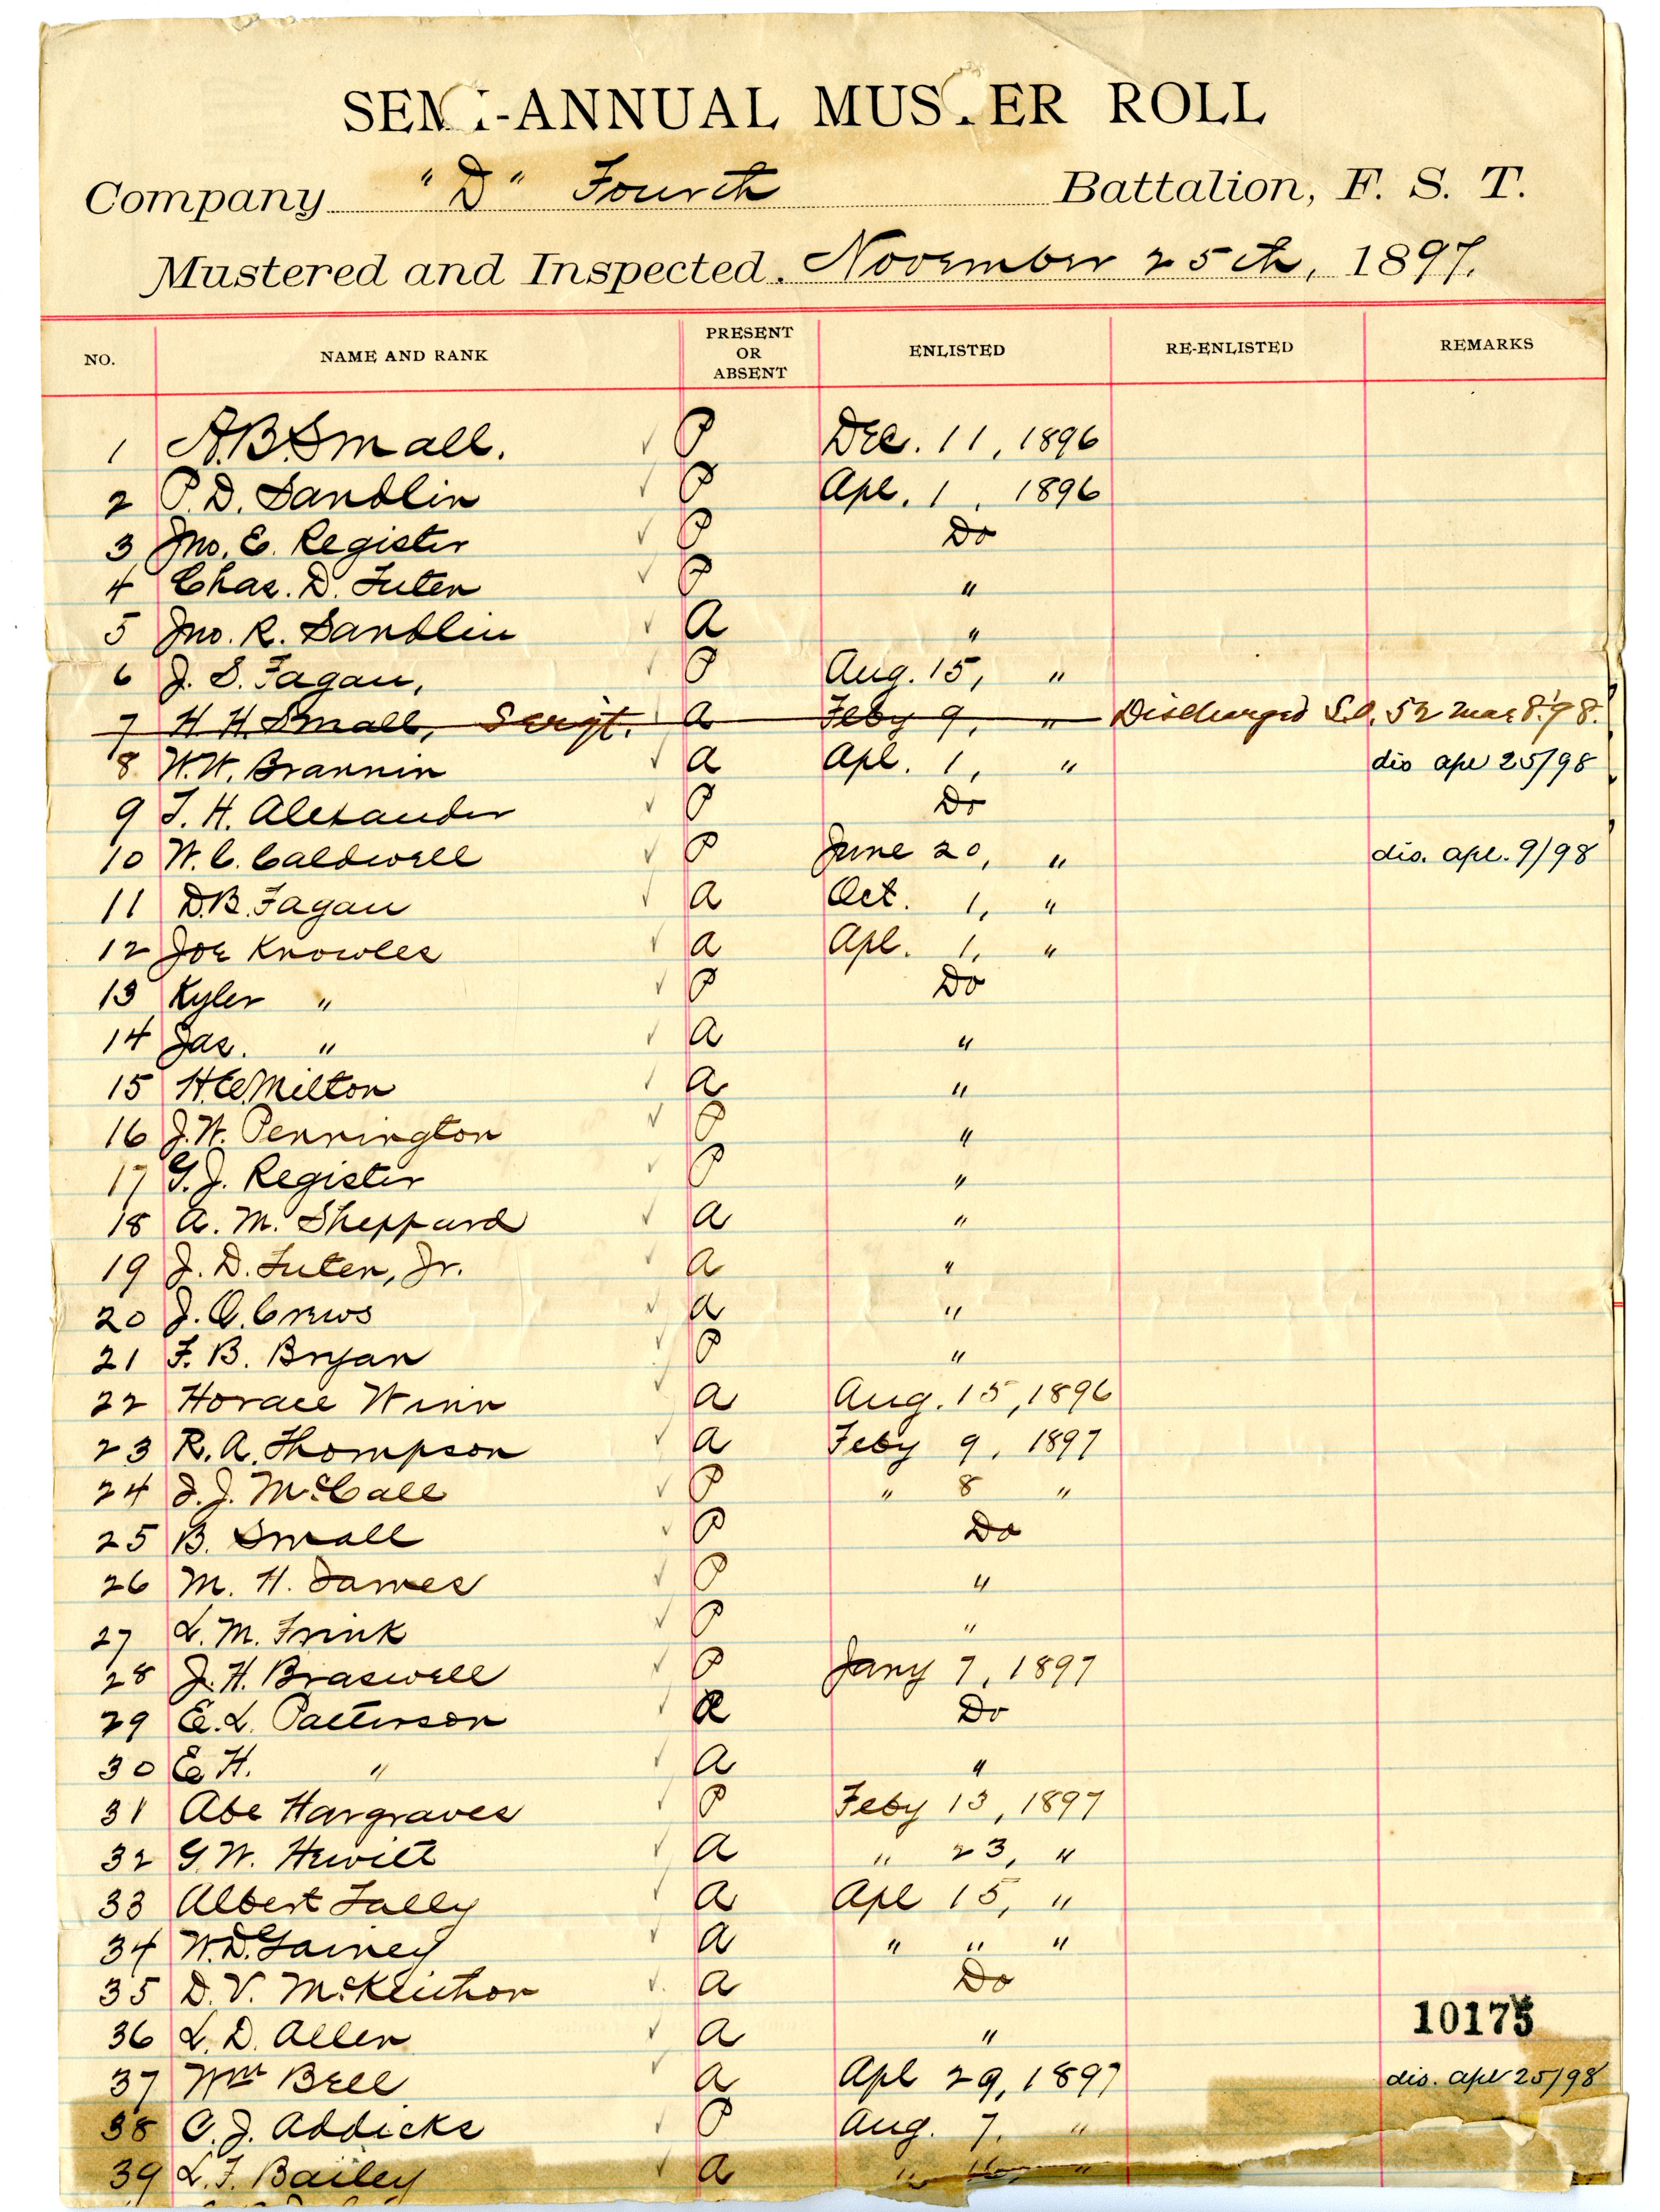 SEMI-ANNUAL MUSTER ROLL
Company "D" Fourth Battalion, F. S. T.
Mustered and Inspected. November 25th, 1897.
NO. NAME AND RANK PRESENT OR ABSENT ENLISTED RE-ENLISTED REMARKS
1 A.B. Small. P Dec. 11, 1896
2 P.D. Sandlin P Apl. 1, 1896
3 Jno. E. Register P Do
4 Chas. D. Futch P "
5 Jno. R. Sandlin A "
6 J. S. Fagan, P Aug. 15, "
7 H H Small, Sergt. a Feby 9, " Discharged S.O. 52 Mar 8.'98.
8 W.W. Brannin a Apl. 1, " dis apl 25/98
9 T. H. Alexander P Do
10 W. C. Caldwell P June 20, " dis. apl. 9/98
11 D.B. Fagan a Oct. 1, "
12 Joe Knowles a Apl. 1, "
13 Kyler " P Do
14 Jas. " a "
15 H.C. Milton a "
16 J.W. Pennington P "
17 G.J. Register P "
18 A. M. Sheppard a "
19 J. D. Futch, Jr. a "
20 J. O. Crews a "
21 F. B. Bryan P "
22 Horace Winn a Aug. 15, 1896
23 R. A. Thompson a Feby 9, 1897
24 J. J. McCall P " 8 "
25 B. Small P Do
26 M. H. James P "
27 L. M. Frink P "
28 J. H. Braswell P Jany 7, 1897
29 E. L. Patterson Do
30 E H. " a "
31 Abe Hargraves P Feby 13, 1897
32 G W. Hewitt a " 23, "
33 Albert Lally a Apl 15, "
34 W.D. Gainey a " " "
35 D. V. McKeithor a Do
36 L. D. Allen a "
10175
37 Wm Bell a Apl 29, 1897 dis. apl 25/98
38 C. J. Addicks P Aug. 7, "
39 L. F. Bailey a " "